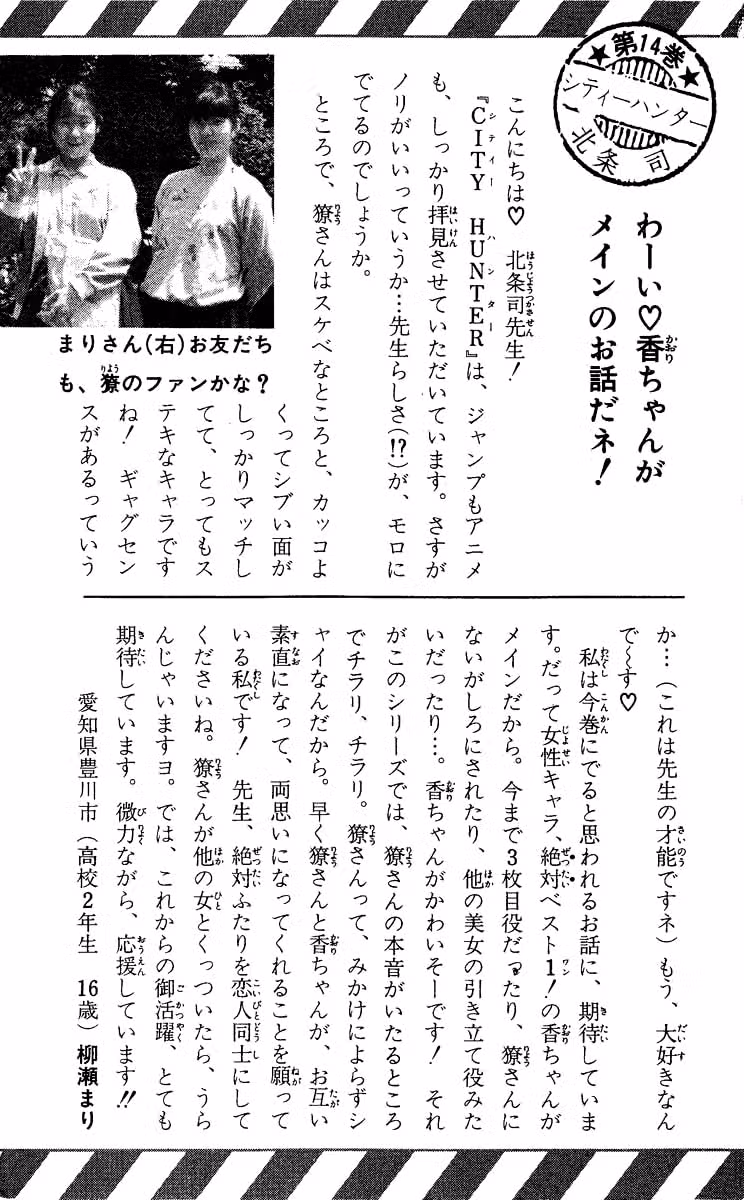 第14巻
シティーハンター
北条 司
わーい♡香ちゃんが
メインのお話だネ!
こんにちは♡ 北条司先生!
『CITY HUNTER』は、ジャンプもアニメ
も、しっかり拝見させていただいています。さすが
ノリがいいっていうか…先生らしさ(!?)が、モロに
でてるのでしょうか。
ところで、獠さんはスケベなところと、カッコよ
くってシブい面が
しっかりマッチし
てて、とってもス
テキなキャラです
ね! ギャグセン
スがあるっていう
まりさん(右)お友だち
も、獠のファンかな?
か…(これは先生の才能ですネ)もう、大好きなん
で〜す♡
私は今巻にでると思われるお話に、期待していま
す。だって女性キャラ、絶対ベスト1!の香ちゃんが
メインだから。今まで3枚目役だったり、獠さんに
ないがしろにされたり、他の美女の引き立て役みた
いだったり…。香ちゃんがかわいそーです! それ
がこのシリーズでは、獠さんの本音がいたるところ
でチラリ、チラリ。獠さんって、みかけによらずシ
ャイなんだから。早く獠さんと香ちゃんが、お互い
素直になって、両思いになってくれることを願って
いる私です! 先生、絶対ふたりを恋人同士にして
くださいね。獠さんが他の女とくっついたら、うら
んじゃいますヨ。では、これからの御活躍、とても
期待しています。微力ながら、応援しています!!
愛知県豊川市(高校2年生 16歳)柳瀬まり